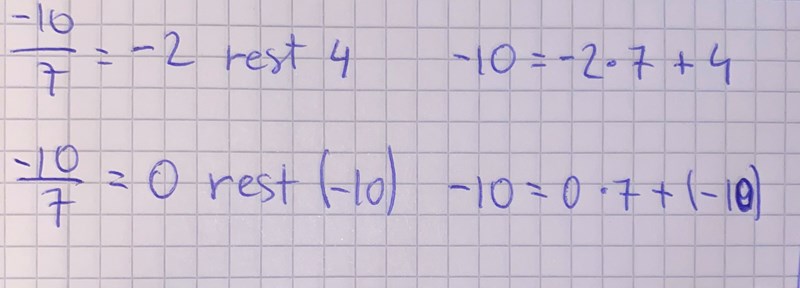 -10/7 = -2 rest 4    -10 = -2·7 + 4
-10/7 = 0 rest (-10)    -10 = 0·7 + (-10)